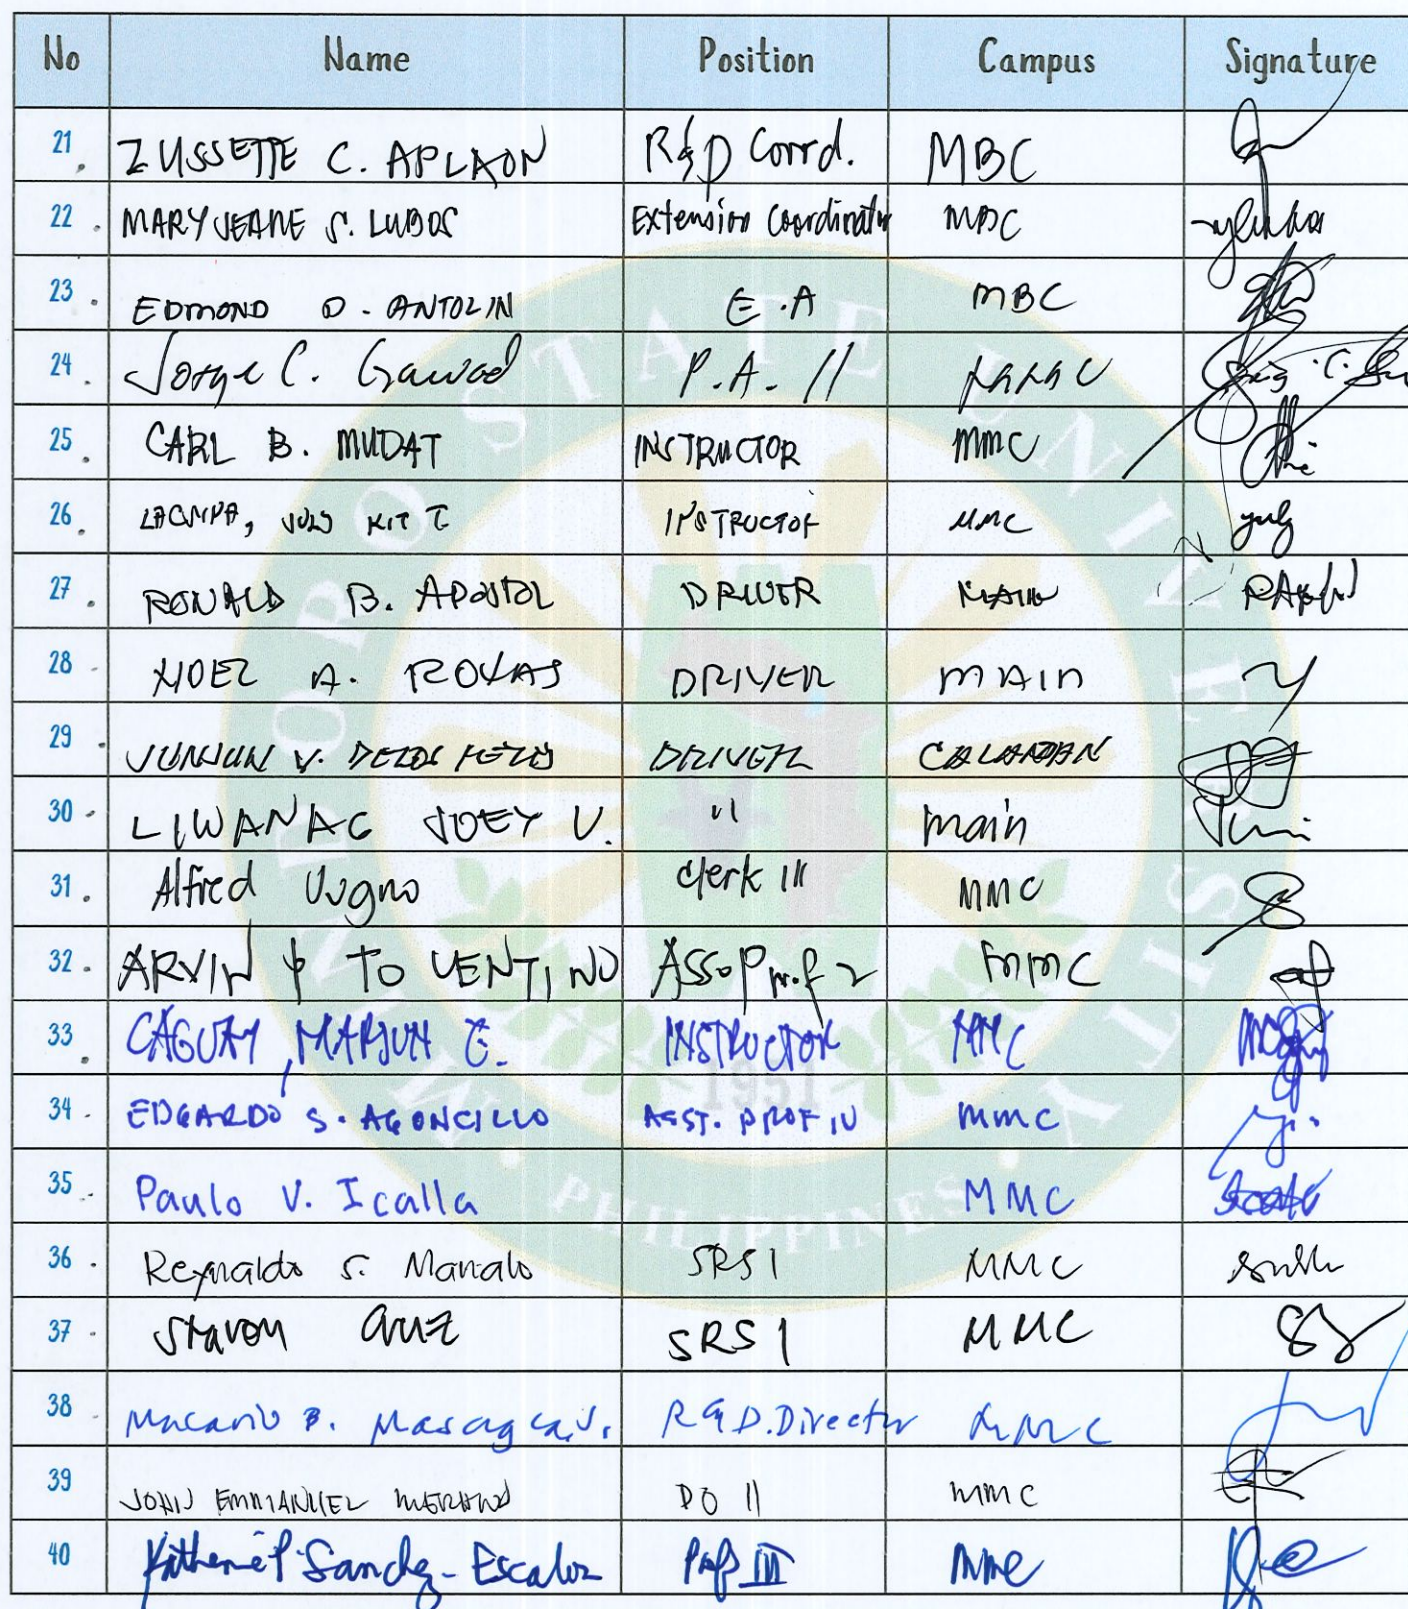 No Name Position Campus Signature
21 ZUSSETTE C. APLAON R&D Corrd. MBC
22 MARY JEANE S. LUBOS Extension Coordinator MBC
23 EDMOND D. ANTOLIN E.A MBC
24 Jorge C. P.A. II
25 CARL B. MUDAT INSTRUCTOR MMC
26 KIT T INSTRUCTOR MMC
27 RONALD B. APOSTOL DRIVER MAIN
28 NOEL A. ROXAS DRIVER MAIN
29 JUNJUN V. DELOS REYES DRIVER CALAPAN
30 LIWANAG JOEY V. " main
31 Alfred Clerk III MMC
32 ARVIN TOLENTINO Asso Prof 2 MMC
33 CAGUAY, MARJUN INSTRUCTOR MMC
34 EDGARDO S. AGONCILLO ASST. PROF IV MMC
35 Paulo V. Icalla MMC
36 Reynaldo S. Manalo SRS I MMC
37 Cruz SRS I MMC
38 Macario B. R&D. Director MMC
39 JOHN EMMANUEL DO II MMC
40 Katherine P. Sanchez-Escalona Prof III MMC
MINDORO STATE UNIVERSITY
1951
PHILIPPINES